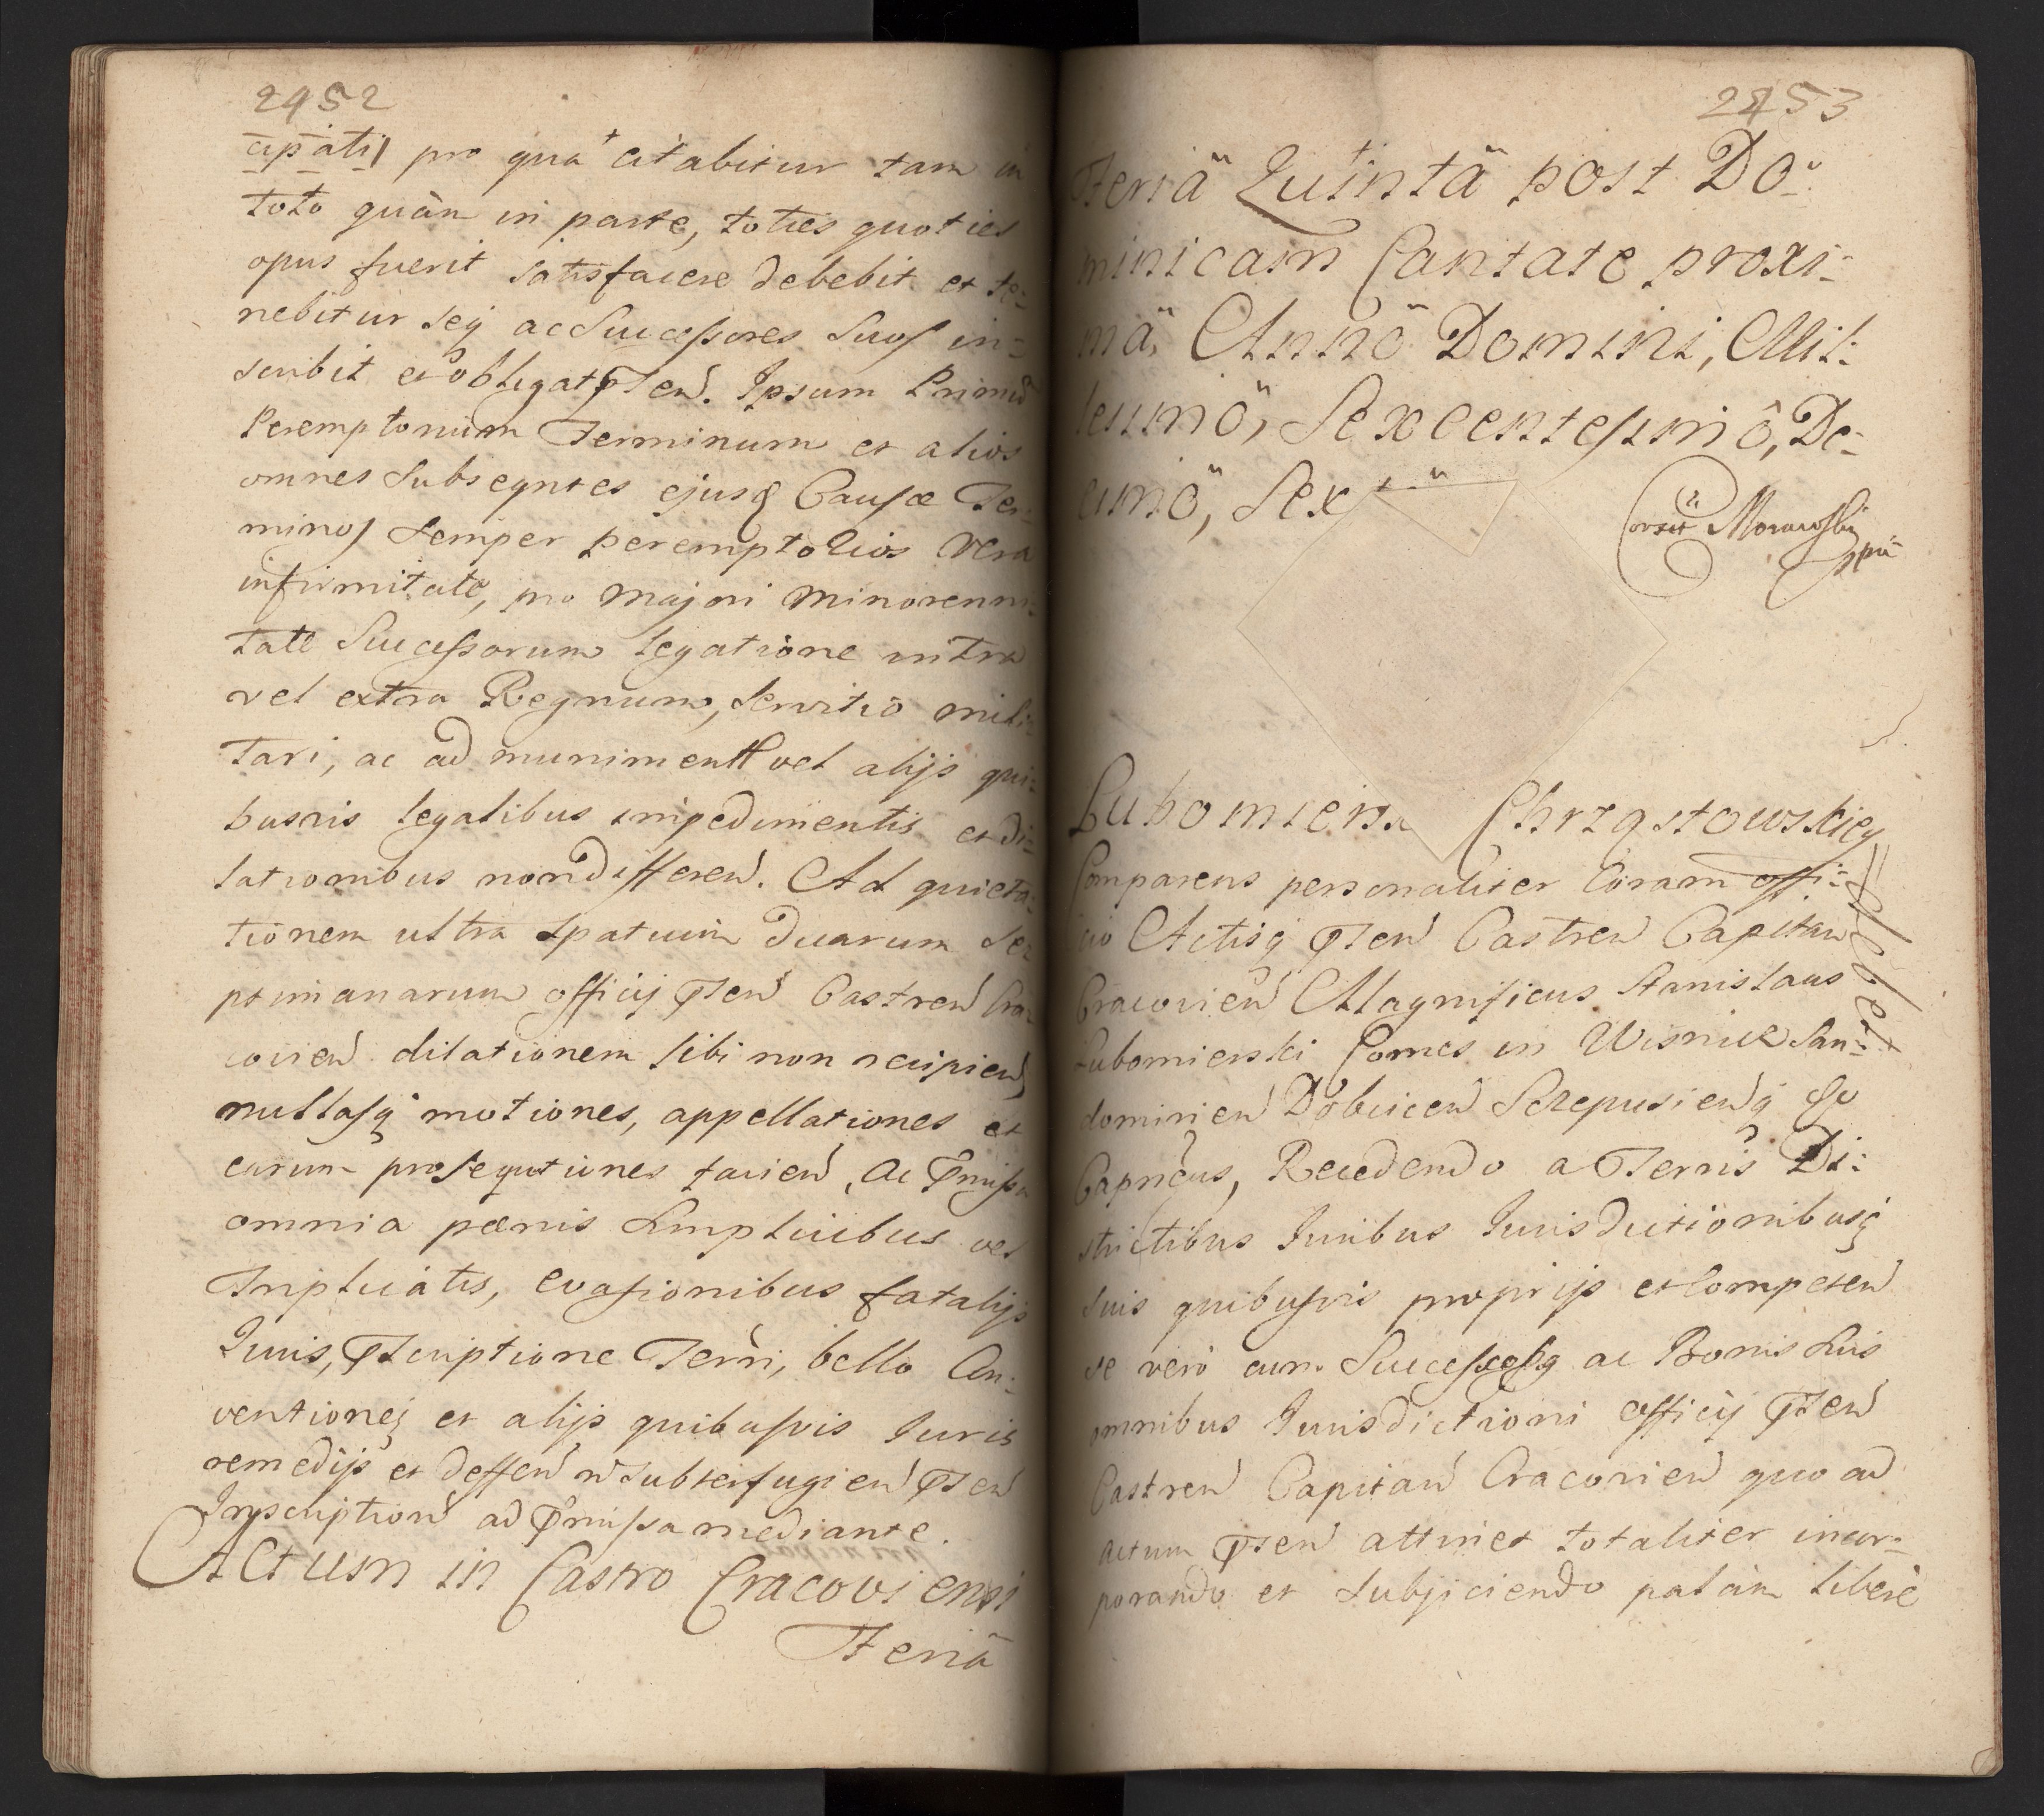 2452
cipáti pro qua citabitur tam in
toto quàm in parte, toties quoties
opus fuerit satisfacere debebit et te=
nebitur seq̃ ac Successores Suos in=
scribit et obligat Pñtem. Ipsum Primũ
Peremptorium Terminum et alios
omnes Subseqntes ejusq̃ Causæ Ter=
minos semper peremptorios vera
infirmitate, pro majori minorenni=
tate Successorum legatione intra
vel extra Regnum, servitio mili=
tari, ac ad muniment vel alijs qui=
busvis legalibus impedimentis et di=
lationibus non differen̄. Ad quieta=
tionem ultra spatium duarum Se=
ptimanarum officij Pñten̄ Castren̄ Cra=
covien̄ dilationem sibi non recipien̄
nullasq̃ motiones, appellationes et
earum prosequtiones facien̄, ac Pr̃missa
omnia pœnis simplicibus vel
Triplicatis, evasionibus fatalijs
Juris, Pr̃scriptione Terri, bello Con=
ventioneq̃ et alijs quibusvis Juris
remedijs et deffen̄ ñ subterfugien̄ Pñten̄
Inscription̄ ad Pr̃missa mediante.
Actum in Castro Cracoviensi
Feriâ
2453
Feriâ Quintâ post Do=
minicam Cantate proxi=
mâ, Annô Domini, Mil=
lesimô, Sexcentesimô, De=
cimô, Sex
Corxit Morawski
mpã
Lubomiersk Chrząstowskiey
Comparens personaliter Coram offi=
cio Actisq̃ Pñten̄ Castren̄ Capitan̄
Cracovien̄ Magnificus Stanislaus
Lubomierski Comes in Wisnicz San=
domirien̄ Dobcicen̄ Scepusien̄q̃ &c
Capneus, Recedendo a Terris Di=
strictibus Juribus Jurisdictionibusq̃
suis quibusvis proprijs et Competen̄
se vero cum Successosq̃ ac Bonis suis
omnibus Jurisdictioni officij Pñten̄
Castren̄ Capitan̄ Cracovien̄ quo ad
actum Pñten̄ attinet totaliter incor=
porando et subjiciendo palàm liberè